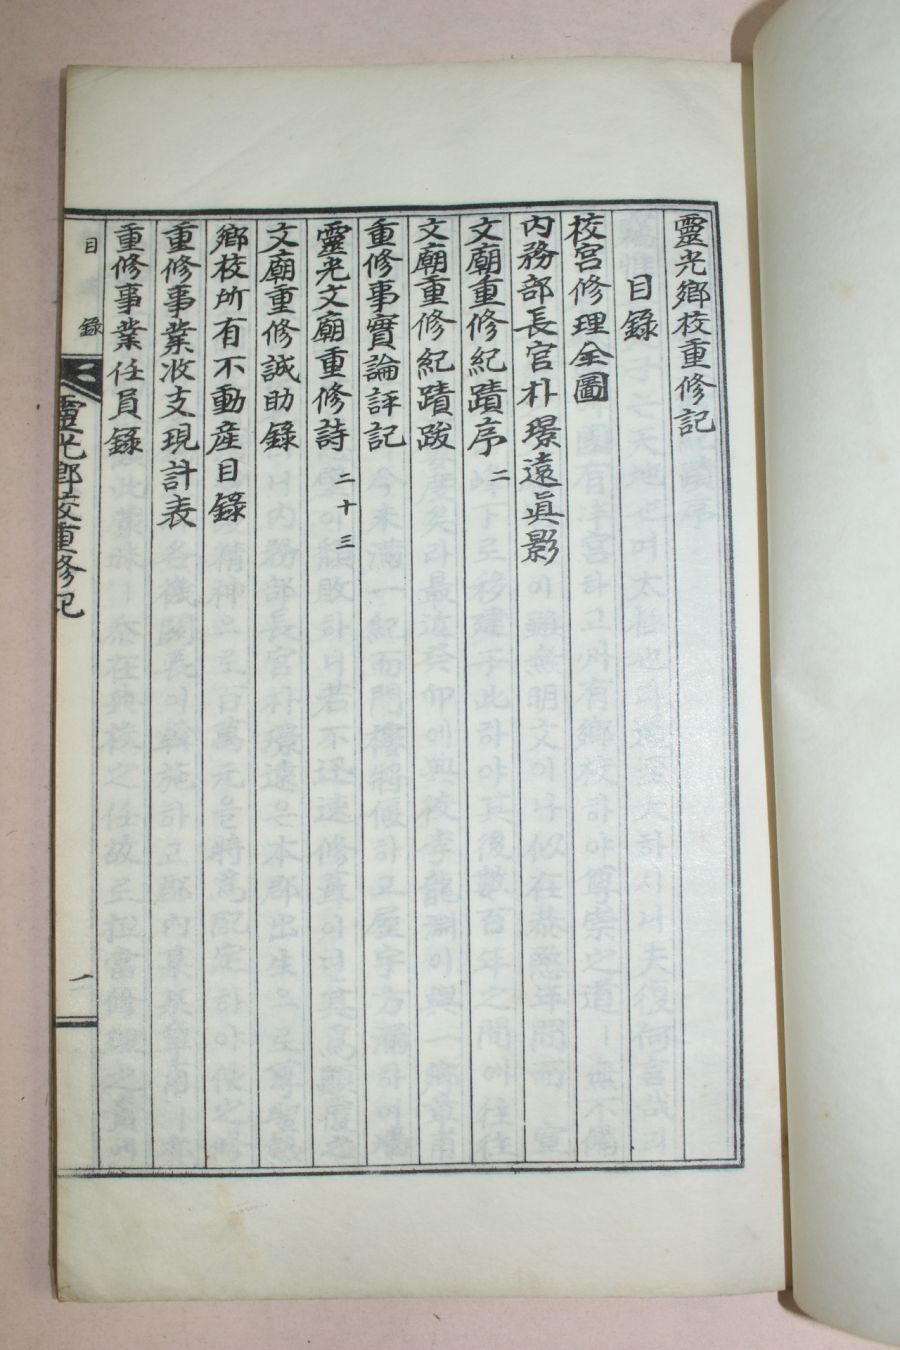 靈光鄕校重修記
目錄
校宮修理全圖
內務部長官朴璟遠眞影
文廟重修紀蹟序 二
文廟重修紀蹟跋
重修事實論評記
靈光文廟重修詩 二十三
文廟重修誠助錄
鄕校所有不動産目錄
重修事業收支現計表
重修事業任員錄
目錄
靈光鄕校重修記
一